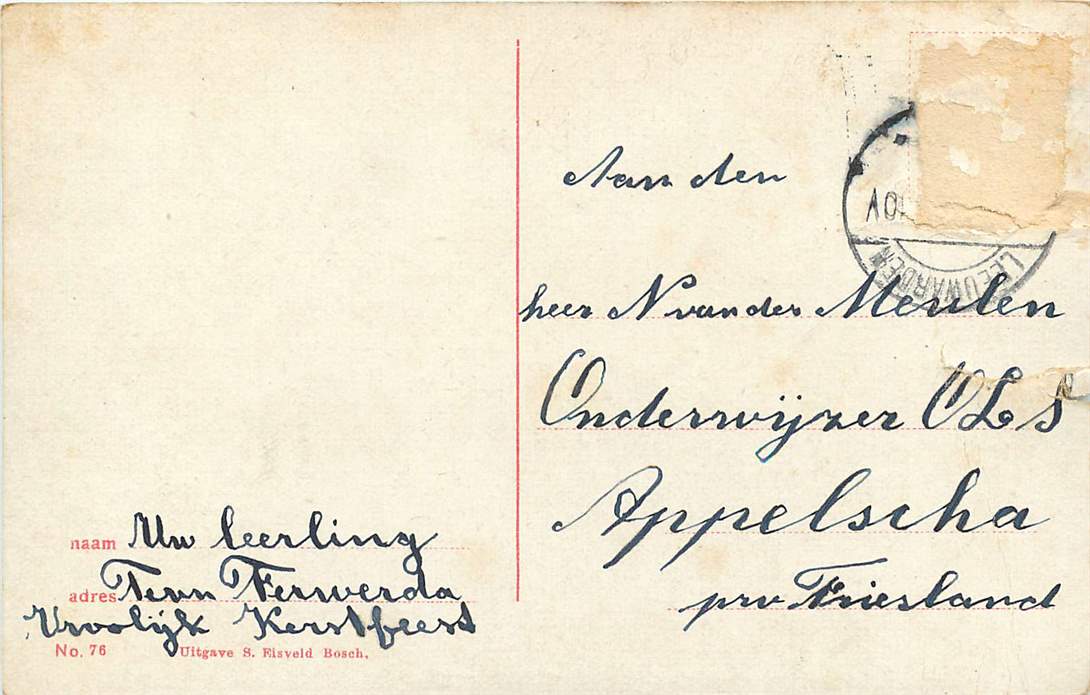 Aan den
heer N van der Meulen
Onderwijzer OLS
Appelscha
prv Friesland
LEEUWARDEN
naam Uw leerling
adres Ferwerda
Vroolijk Kerstfeest
No. 76 Uitgave S. Eisveld Bosch.